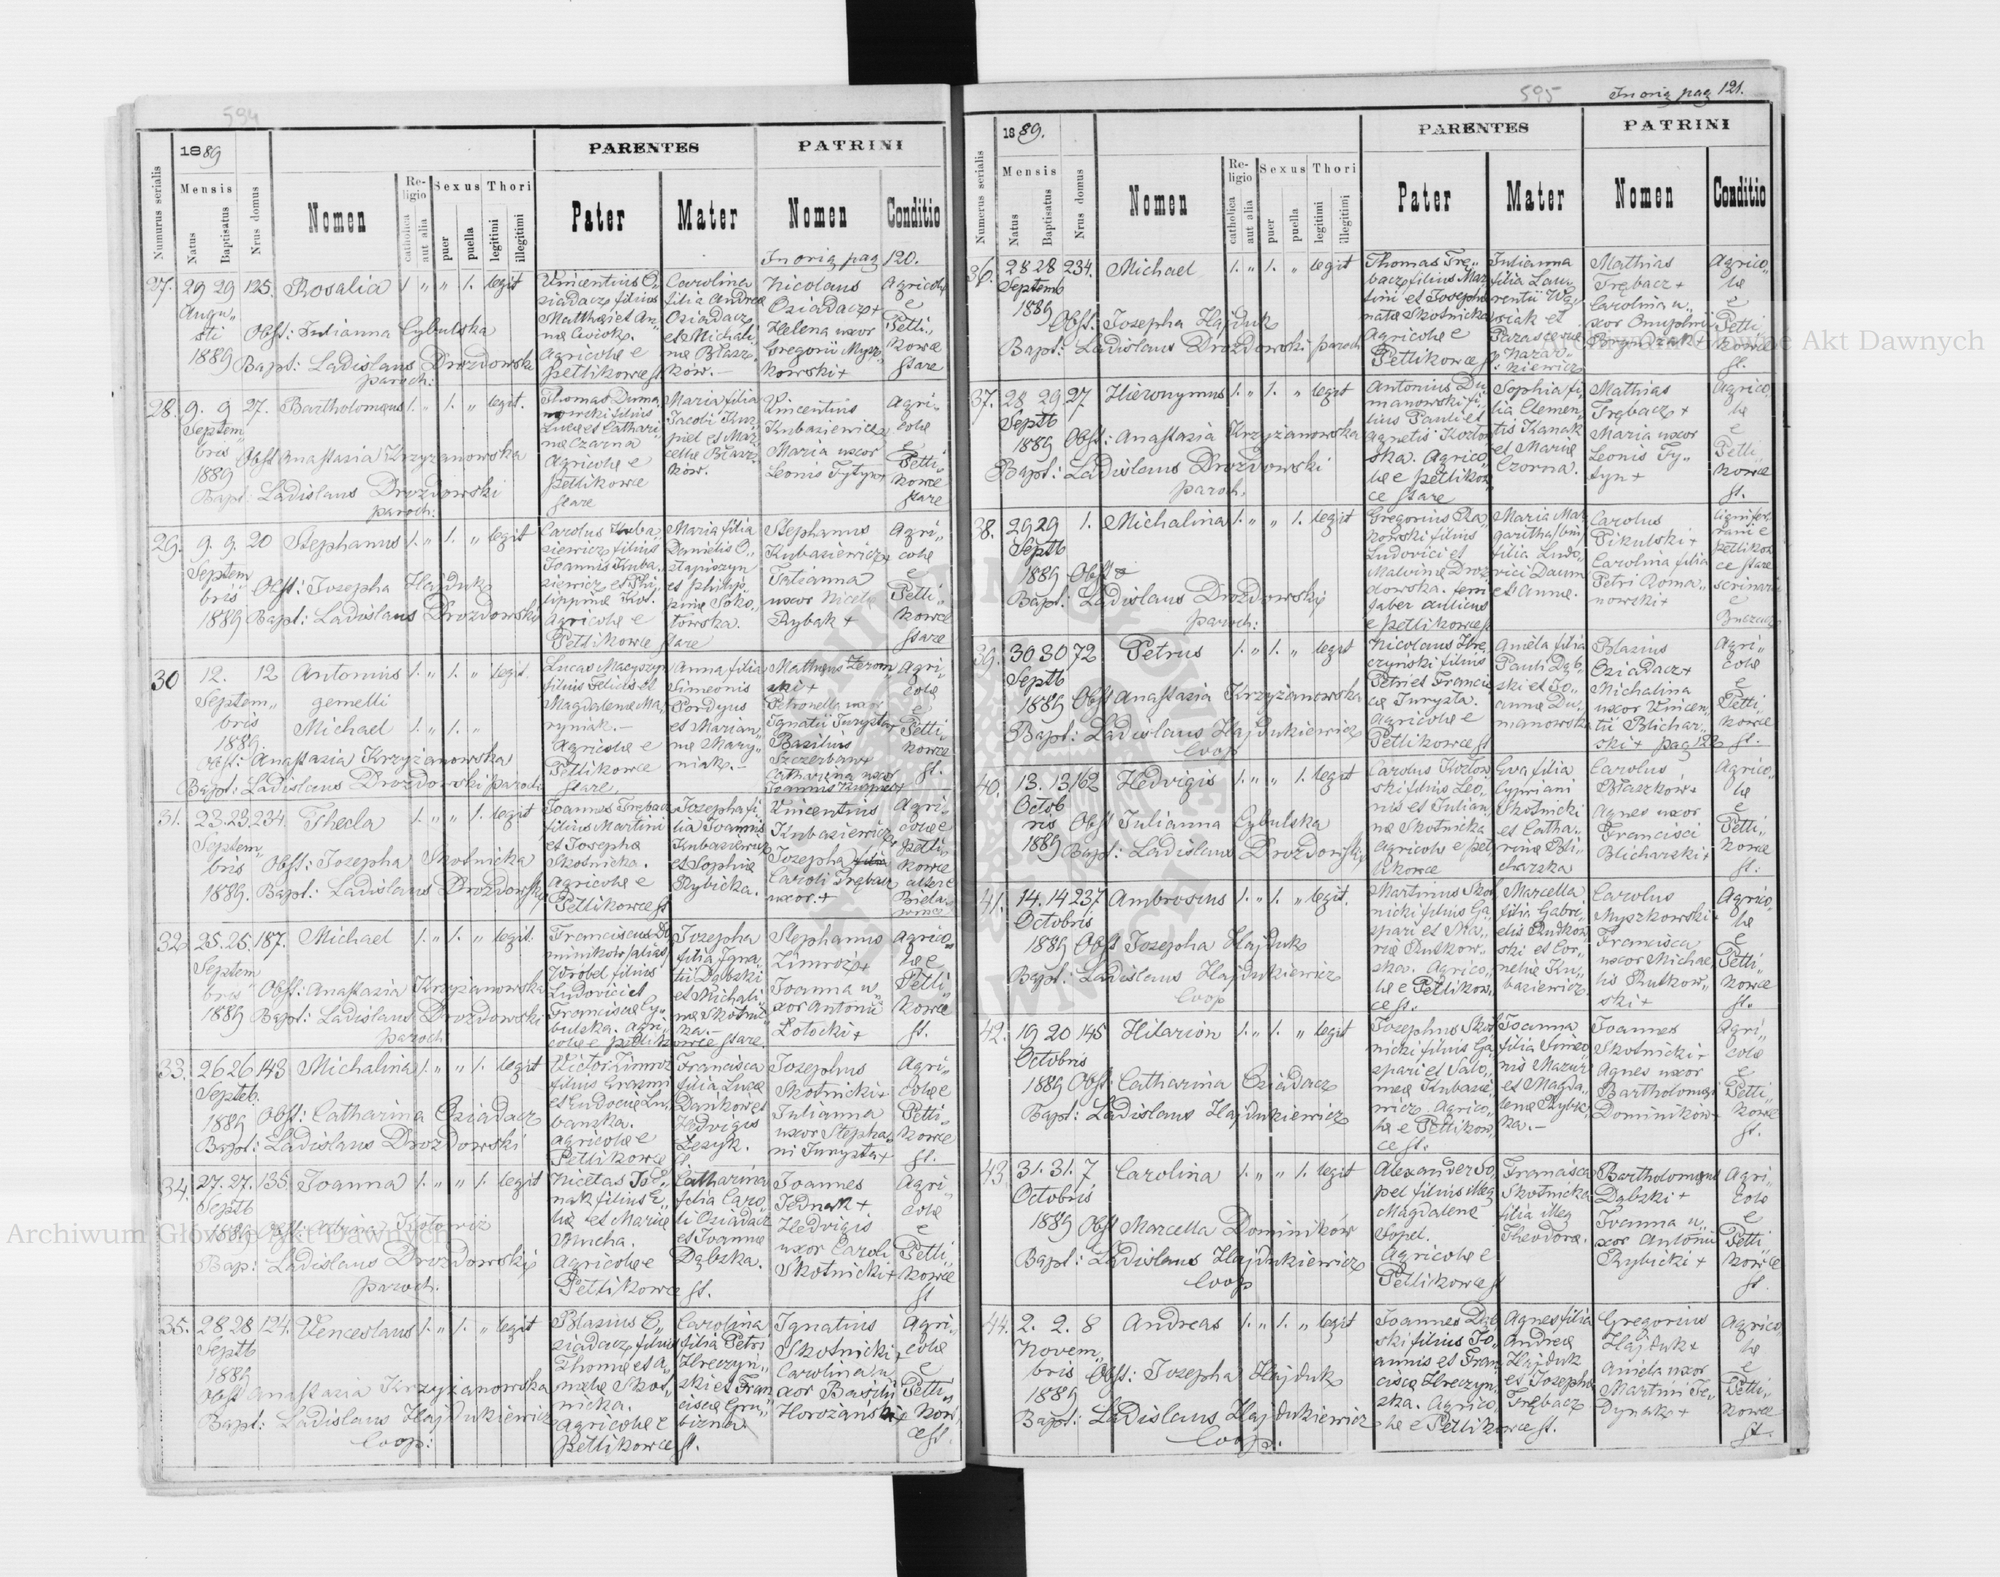 594
1889
PARENTES
PATRINI
Numurus serialis
Mensis
Natus
Baptisatus
Nrus domus
Nomen
Religio
catholica
aut alia
Sexus
puer
puella
Thori
legitimi
illegitimi
Pater
Mater
Nomen
Conditio
In orig pag 120.
27. 29 29 125. Rosalia 1 " " 1. legit
Augusti
1889
Obst: Julianna Cybulska
Bapt: Ladislaus Drozdowski
paroch:
Vincentius O-
siadacz filius
Matthaei et An-
nae
Agricolae e
Petlikowce st
Carolina
filia Andreae
Osiadacz
et Michali-
nae Błasz-
ków.—
Nicolaus
Osiadacz+
Helena uxor
Gregorii Mysz-
kowski+
Agricolae
e
Petli-
kowce
stare
28. 9. 9 27. Bartholomeus 1. " 1. " legit.
Septem
bris
1889
Obst Anastasia Krzyżanowska
Bapt: Ladislaus Drozdowski
paroch:
Thomas Duma
nowski filius
Lucae et Cathari-
nae Czarna
Agricolae e
Petlikowce
stare
Maria filia
Jacobi
et Mar-
cellae Błasz-
ków.
Vincentius
Kubasiewicz
Maria uxor
Leonis Tytyn+
Agri-
colae
e
Petli-
kowce
stare
29. 9. 9. 20 Stephanus 1. " 1. " legit
Septem
bris
1889
Obst: Josepha Hajduk
Bapt: Ladislaus Drozdowski
Carolus Kuba-
siewicz filius
Joannis Kuba-
siewicz et Phi-
lippinae
Agricolae e
Petlikowce stare
Maria filia
Danielis O-
stapiszyn
et Philip-
pinae Soko-
łowska.
Stephanus
Kubasiewicz+
Tatianna
uxor
Rybak +
Agri-
colae
e
Petli-
kowce
stare
30 12. 12 Antonius 1. " 1. " legit.
Septem-
bris
1889.
gemelli
Michael 1. " 1. "
Obst: Anastasia Krzyżanowska
Bapt: Ladislaus Drozdowski paroch
Lucas
filius Felicis et
Magdalenae Ma-
ryniak.—
Agricolae e
Petlikowce
stare,
Anna filia
Simeonis
Serdyus
et Marian-
nae Mary-
niak.—
Mathaeus
ski+
Petronella uxor
Ignatii Turysta+
Basilius
Szczerban+
Catharina uxor
Joannis
Agri-
colae
e
Petli-
kowce
st.
31. 23. 23. 234. Thecla 1. " " 1. legit
Septem-
bris
1889.
Obst: Josepha Skotnicka
Bapt: Ladislaus Drozdowski
Joannes Trębacz
filius Martini
et Josepha
Skotnicka.
Agricolae e
Petlikowce st
Josepha fi-
lia Joannis
Kubasiewicz
et Sophiae
Rybicka.
Vincentius
Kubasiewicz
Josepha filia
Caroli Trębacz
uxor.+
Agri-
colae e
Petli-
kowce
32. 25. 25. 187. Michael 1. " 1. " legit.
Septem
bris
1889
Obst: Anastasia Krzyżanowska
Bapt: Ladislaus Drozdowski
paroch
Franciscus Do
minikow alias
Wróbel filius
Ludovici et
Franciscae Cy-
bulska. Agri-
colae e Petlikowce stare.
Josepha
filia Igna-
tii Dąbski
et Michali-
nae Skotnic-
ka.—
Stephanus
Zimroz+
Joanna u-
xor Antonii
Łotocki+
Agrico-
lae e
Petli-
kowce
st.
33. 26 26 143 Michalina 1. " " 1. legit
Septeb.
1889
Obst: Catharina Osiadacz
Bapt: Ladislaus Drozdowski
Victor Zimroz
filius Erasmi
et Eudociae Lu-
banska.
Agricolae e
Petlikowce st.
Francisca
filia Lucae
Danków et
Hedvigis
Lesyk.
Josephus
Skotnicki+
Julianna
uxor Stepha-
ni Turysta+
Agri-
colae e
Petli-
kowce
st.
34. 27. 27. 135. Joanna 1. " " 1. legit
Septb
1889
Bap: Ladislaus Drozdowski
paroch.
Nicetas
nak filius E-
liae et Mariae
Mucha.
Agricolae e
Petlikowce st.
Catharina
filia Caro-
li Osiadacz
et Joannae
Dąbska.
Joannes
Jednak+
Hedvigis
uxor Caroli
Skotnicki+
Agri-
colae
e
Petli-
kowce
st
35. 28. 28 124. Venceslaus 1. " 1. " legit
Septb
1889
Obst Anastasia Krzyżanowska
Bapt: Ladislaus Hajdukiewicz
Coop:
Blasius O-
siadacz filius
Thomae et A-
Skot-
nicka.
Agricolae e
Petlikowce st.
Carolina
filia Petri
Hreczyń-
ski et Fran
ciscae Gru-
bizna
Ignatius
Skotnicki+
Carolina u-
xor Basilii
Horożanski+
Agri-
colae
e
Petli-
kow
ce st.
595
In orig pag 121.
1889.
PARENTES
PATRINI
Numerus serialis
Mensis
Natus
Baptisatus
Nrus domus
Nomen
Religio
catholica
aut alia
Sexus
puer
puella
Thori
legitimi
illegitimi
Pater
Mater
Nomen
Conditio
36. 28 28 234. Michael 1. " 1. " legit
Septemb
1889
Obst: Josepha Hajduk
Bapt: Ladislaus Drozdowski paroch
Thomas Trę-
bacz filius Mar
tini et Josepha
nata Skotnicka
Agricolae e
Petlikowce st
Julianna
filia Lau-
rentii Wą-
siak et
Parascevae
Nazar-
kiewicz
Mathias
Trębacz+
Carolina u-
xor Onuphrii
Agrico-
lae
e
Petli-
kowce
st.
37. 28 29 27 Hieronymus 1. " 1. " legit
Septb
1889
Obst: Anastasia Krzyżanowska
Bapt: Ladislaus Drozdowski
paroch.
Antonius Du-
manowski fi-
lius Pauli et
Agnetis Kozłow
ska. Agrico-
lae e Petlikow-
ce stare
Sophia fi-
lia Clemen-
tis Kanak
et Mariae
Czorna.
Mathias
Trębacz+
Maria uxor
Leonis Ty-
tyn+
Agrico-
lae
e
Petli-
kowce
st.
38. 29 29 1. Michalina 1. " " 1. legit
Septb
1889
Obst
Bapt: Ladislaus Drozdowski
paroch:
Gregorius Ra-
kowski filius
Ludovici et
Malvinae Droz-
dowska. ferri
faber aulicus
e Petlikowce st
Maria Mar
garitha
filia Ludo-
vici Daum
et Annae.
Carolus
Pikulski+
Carolina filia
Petri Roma-
nowski+
e
Petlikow
ce stare
e
39. 30 30 72 Petrus 1. " 1. " legit
Septb
1889
Obst Anastasia Krzyżanowska
Bapt: Ladislaus Hajdukiewicz
Coop
Nicolaus Hre-
czyński filius
Petri et Francis-
cae Turysta.
Agricolae e
Petlikowce st
Amelia filia
Pauli Dąb-
ski et Jo-
annae Du-
manowska
Blasius
Osiadacz+
Michalina
uxor Vincen-
tii Blichar-
ski+ pag 122
Agri-
colae
e
Petli-
kowce
st.
40. 13. 13 162 Hedvigis 1. " " 1. legit
Octob
ris
1889
Obst Julianna Cybulska
Bapt: Ladislaus Drozdowski
Carolus Kozłow
ski filius Leo-
nis et Julian-
nae Skotnicka
Agricolae e Pet-
likowce
Eva filia
Cypriani
Skotnicki
et Catha-
rinae Bli-
charska
Carolus
Błaszków+
Agnes uxor
Francisci
Blicharski+
Agrico-
lae
e
Petli-
kowce
st:
41. 14. 14 237 Ambrosius 1. " 1. " legit.
Octobris
1889
Obst Josepha Hajduk
Bapt: Ladislaus Hajdukiewicz
Coop
Martinus Skot
nicki filius Ga-
spari et Ma-
riae Rutkow-
ska. Agrico-
lae e Petlikow-
ce st.
Marcella
filia Gabri-
elis Rutkow
ski et Cor-
neliae Ku-
basiewicz.
Carolus
Myszkowski+
Francisca
uxor Michae-
lis Rutkow-
ski+
Agrico-
lae
e
Petli-
kowce
st.
42. 19 20 145 Hilarion 1. " 1. " legit
Octobris
1889
Obst: Catharina Osiadacz
Bapt: Ladislaus Hajdukiewicz
Josephus Skot
nicki filius Ga-
spari et Salo-
meae Kubasie-
wicz. Agrico-
lae e Petlikow-
ce st.
Joanna
filia Simeo-
nis Mazur
et Magda-
lenae Rybic-
ka.—
Joannes
Skotnicki+
Agnes uxor
Bartholomaei
Dominików+
Agri-
colae
e
Petli-
kowce
st.
43. 31. 31. 7 Carolina 1. " " 1. legit
Octobris
1889
Obst Marcella Dominików
Bapt: Ladislaus Hajdukiewicz
Coop
Alexander So-
pel filius illeg
Magdalenae
Sopel.
Agricolae e
Petlikowce st
Francisca
Skotnicka
filia illeg
Theodorae.
Bartholomeus
Dąbski+
Joanna u-
xor Antonii
Rybicki+
Agri-
colae
e
Petli-
kowce
st.
44. 2. 2. 8 Andreas 1. " 1. " legit
Novem-
bris
1889
Obst: Josepha Hajduk
Bapt: Ladislaus Hajdukiewicz
Coop.
Joannes Dąb
ski filius Jo-
annis et Fran
ciscae Hreczyn-
ska. Agrico-
lae e Petlikowce st.
Agnes filia
Andreae
Hajduk
et Josepha
Trębacz
Gregorius
Hajduk+
Amelia uxor
Martini Je-
dynak+
Agrico-
lae
e
Petli-
kowce
st.
Archiwum Główne Akt Dawnych
Archiwum Główne Akt Dawnych